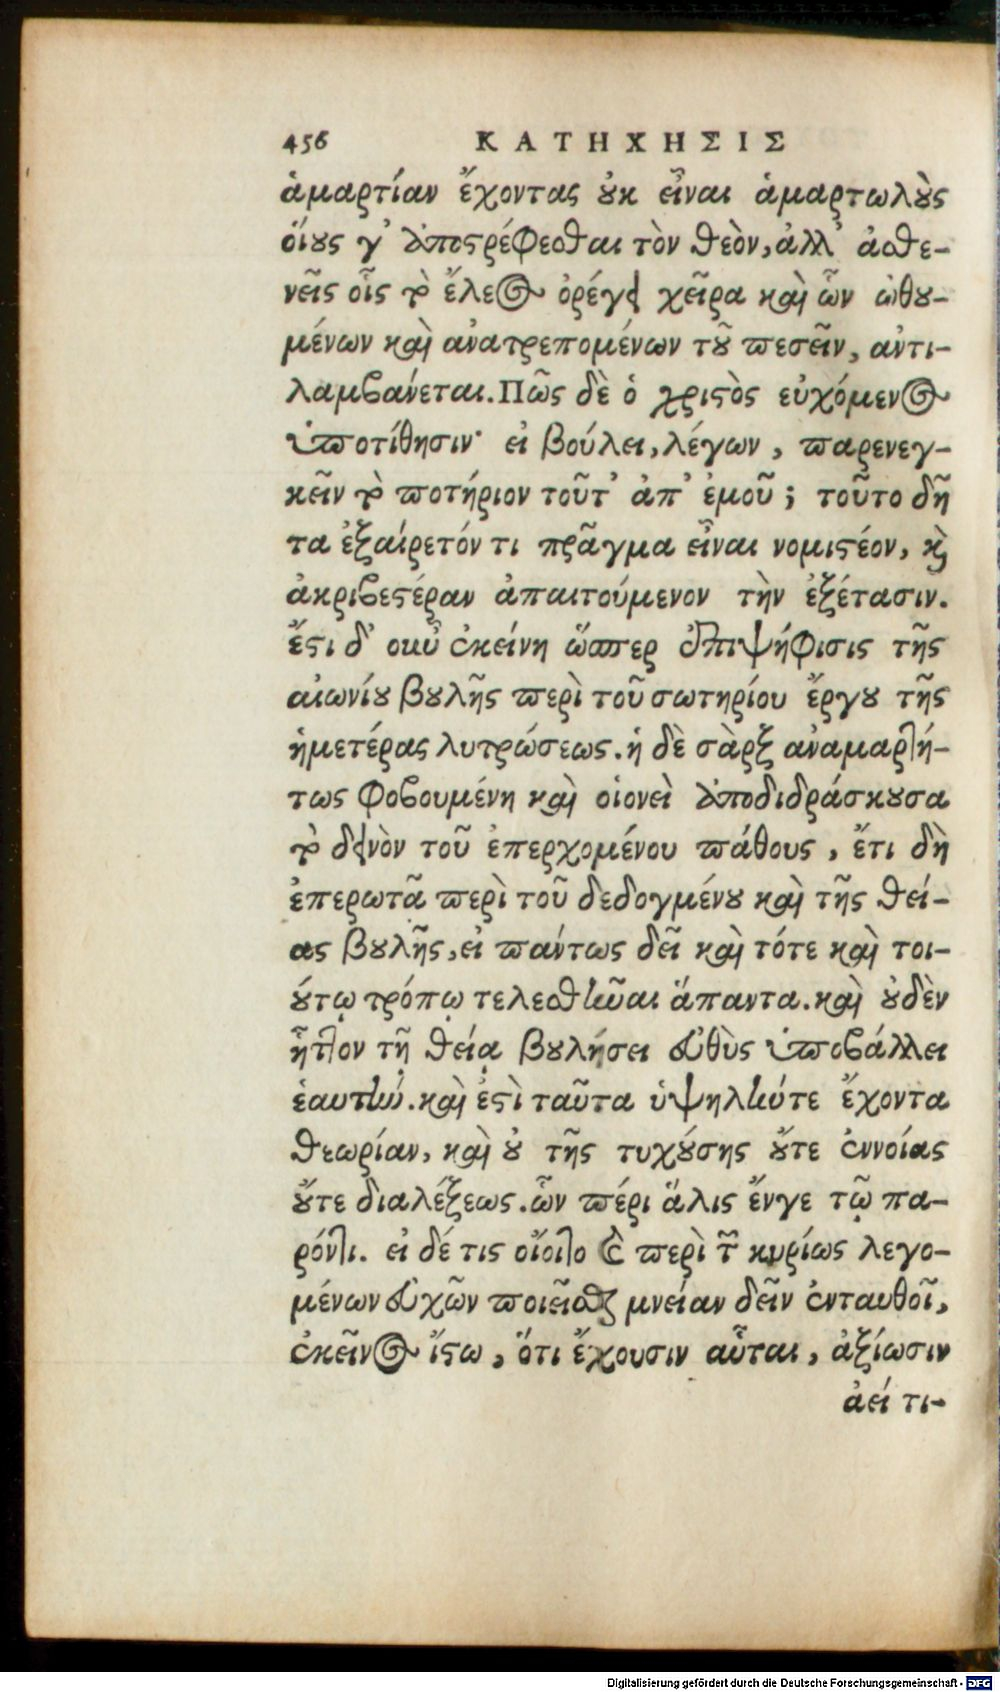 456 ΚΑΤΗΧΗΣΙΣ
ἁμαρτίαν ἔχοντας ȣκ εἶναι ἁμαρτωλȣ̀ς
οἵȣς γ' ἀποςρέφεσθαι τὸν θεὸν, ἀλλ' ἀσθε-
νεῖς οἷς τὸ ἔλεος ὀρέγει χεῖρα καὶ ὧν ὠθȣ-
μένων καὶ ἀνατρεπομένων τȣ͂ πεσεῖν, ἀντι-
λαμβάνεται. Πῶς δὲ ὁ χριςὸς εὐχόμενος
ὑποτίθησιν· εἰ βούλει, λέγων, παρενεγ-
κεῖν τὸ ποτήριον τοῦτ' ἀπ' ἐμοῦ; τοῦτο δῆ
τα ἐξαίρετόν τι πρᾶγμα εἶναι νομιςέον, κὶ
ἀκριβεςέραν ἀπαιτούμενον τὴν ἐξέτασιν.
ἔςι δ' οὖν ἐκείνη ὥσπερ ἐπιψήφισις τῆς
αἰωνίȣ βȣλῆς περὶ τοῦ σωτηρίου ἔργȣ τῆς
ἡμετέρας λυτρώσεως. ἡ δὲ σὰρξ ἀναμαρτή-
τως φοβουμένη καὶ οἱονεὶ ἀποδιδράσκȣσα
τὸ δεινὸν τοῦ ἐπερχομένου πάθους, ἔτι δὴ
ἐπερωτᾶ περὶ τοῦ δεδογμένȣ καὶ τῆς θεί-
ας βȣλῆς, εἰ πάντως δεῖ καὶ τότε καὶ τοι-
ȣ́τῳ τρόπῳ τελεσθῆναι ἅπαντα. καὶ ȣ̓δὲν
ἧττον τῇ θείᾳ βȣλήσει εὐθὺς ὑποβάλλει
ἑαυτήν. καὶ ἐςὶ ταῦτα ὑψηλήν τε ἔχοντα
θεωρίαν, καὶ ȣ̓ τῆς τυχȣ́σης ȣ̓́τε ἐννοίας
ȣ̓́τε διαλέξεως. ὧν πέρι ἅλις ἔνγε τῷ πα-
ρόντι. εἰ δέ τις οἴοιτο καὶ περὶ τῶν κυρίως λεγο-
μένων εὐχῶν ποιεῖσθαι μνείαν δεῖν ἐνταυθοῖ,
ἐκεῖνος ἴςω, ὅτι ἔχουσιν αὗται, ἀξίωσιν
ἀεί τι-
Digitalisierung gefördert durch die Deutsche Forschungsgemeinschaft - DFG